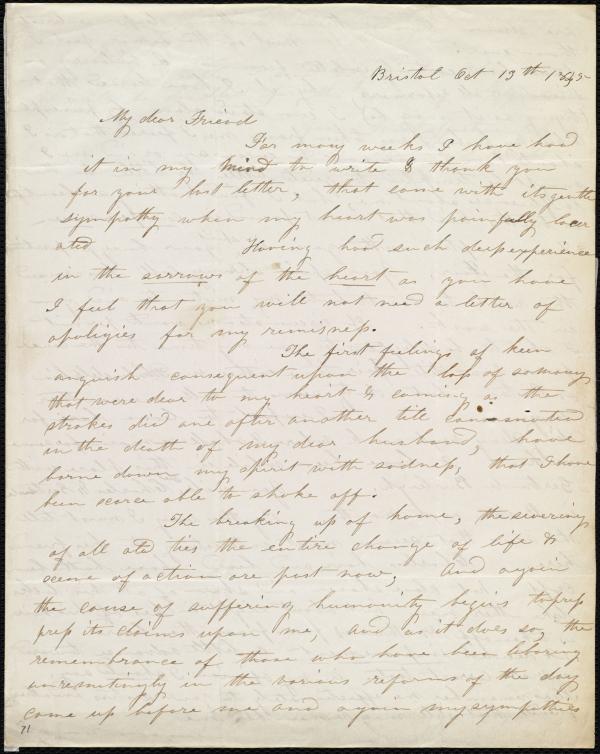 Bristol Oct 13th 1845
My dear Friend
For many weeks I have had
it in my mind to write & thank you
for your last letter, that came with its gentle
sympathy when my heart was painfully lacer
ated Having had such deep experience
in the sorrows of the heart as you have
I feel that you will not need a letter of
apoligies for my remisness.
The first feelings of keen
anguish consequent upon the loss of so many
that were dear to my heart & coming as the
strokes did one after another till
in the death of my dear husband, have
borne down my spirit with sadness, that I have
been scarce able to shake off.
The breaking up of home, the severing
of all old ties the entire change of life &
scene of action are past now, And again
the cause of suffering humanity begins to press
press its claims upon me, and as it does so, the
remembrance of those who have been laboring
unremittingly in the various reforms of the day
come up before me and again my sympathies
71